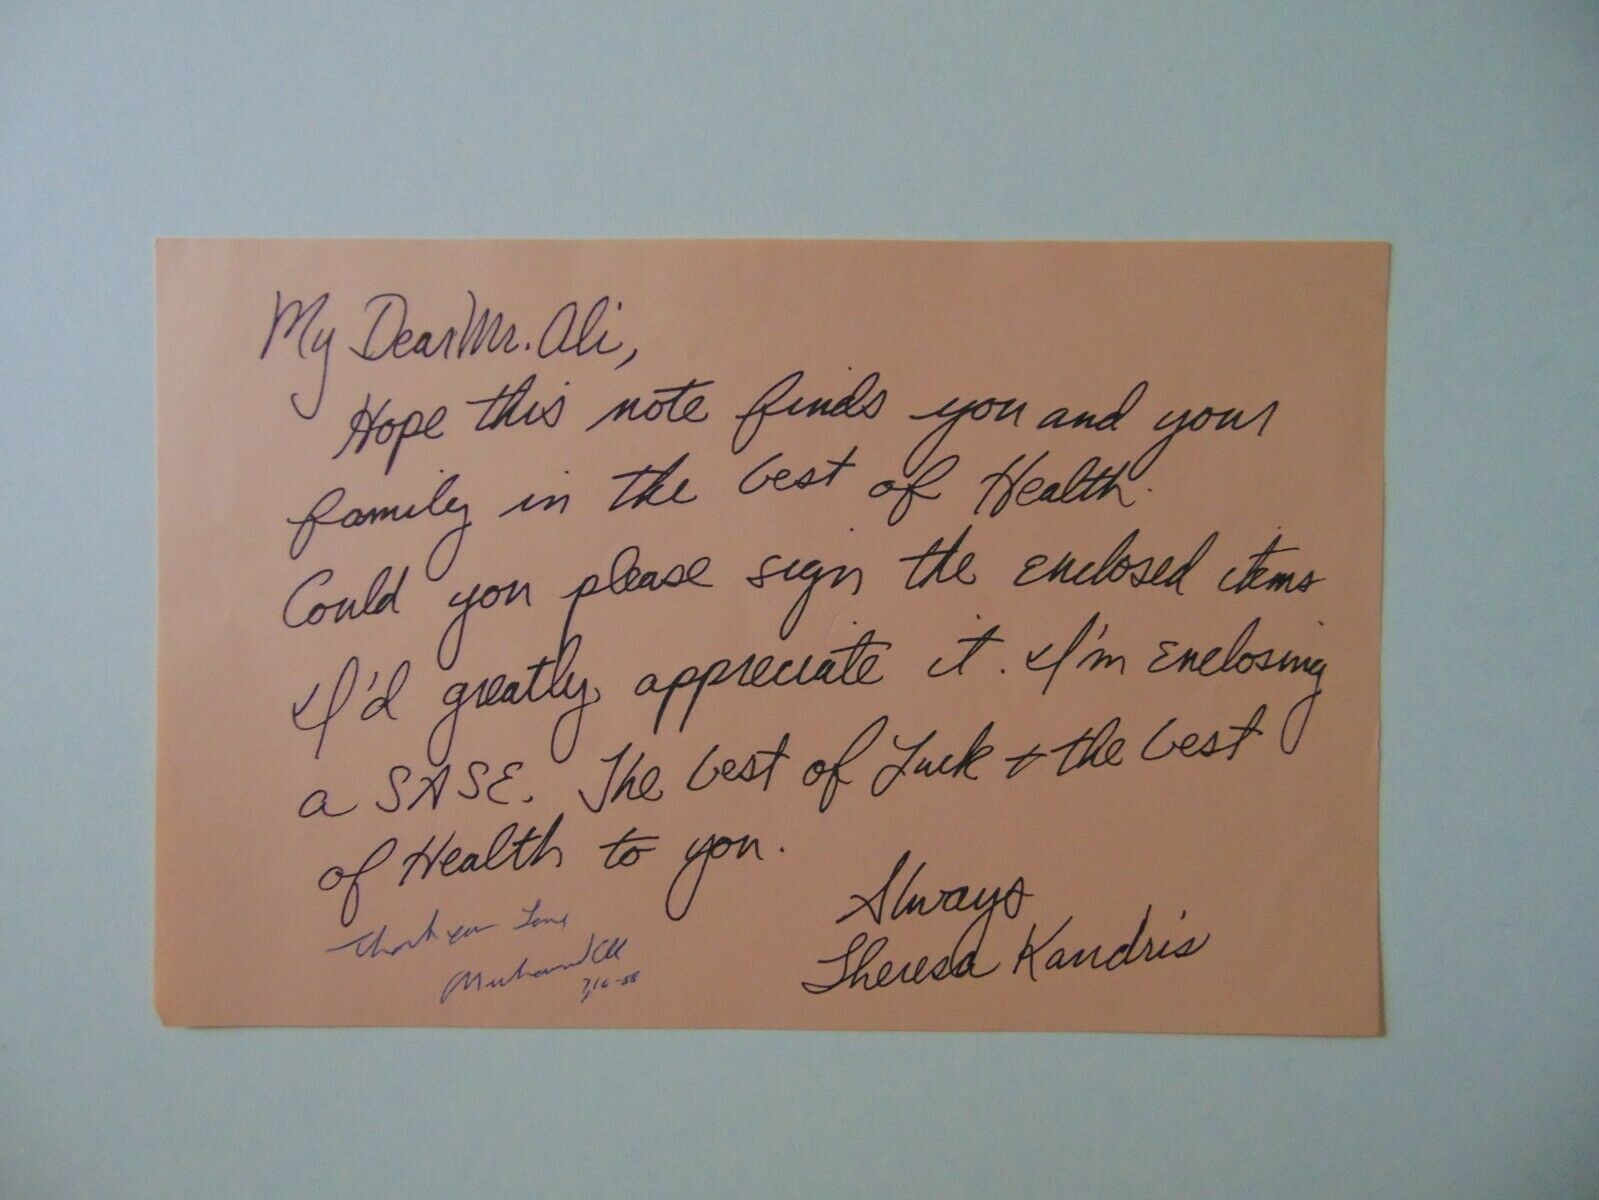 My Dear Mr. Ali,
Hope this note finds you and your
family in the best of Health.
Could you please sign the enclosed items
I'd greatly appreciate it. I'm Enclosing
a SASE. The best of Luck + the best
of Health to you.
Always
Theresa Kandris
Thank you Love
Muhammad Ali